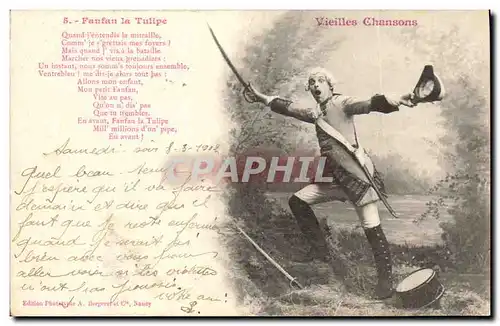 5. - Fanfan la Tulipe
Vieilles Chansons
Quand j'entendis la mitraille,
Comm' je r'grettais mes foyers !
Mais quand j' vis à la bataille
Marcher nos vieux grenadiers :
Un instant, nous somm's toujours ensemble,
Ventrebleu ! me dis-je alors tout bas :
Allons mon enfant,
Mon petit Fanfan,
Vite au pas,
Qu'on n' dis' pas
Que tu trembles.
En avant, Fanfan la Tulipe
Mill' millions d'un' pipe,
En avant !
Samedi soir
Quel beau
J'espère qu'il va faire
demain et dire que il
faut que je reste enfermé
quand je serait si
bien avec
aller voir
m'ont pas
votre ami
CARPHIL
Edition Phototypie A. Bergeret et Cie, Nancy